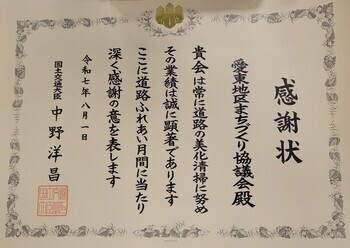 感謝状
愛東地区まちづくり協議会殿
貴会は常に道路の美化清掃に努め
その業績は誠に顕著であります
ここに道路ふれあい月間に当たり
深く感謝の意を表します
令和七年八月一日
国土交通大臣 中野洋昌